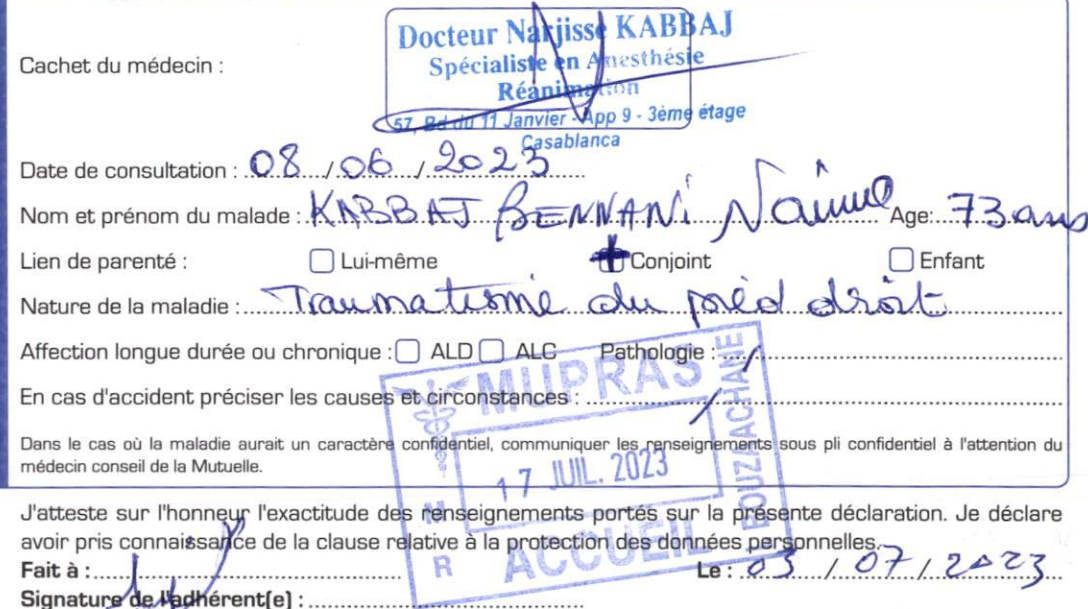 Docteur Narjisse KABBAJ
Spécialiste en Anesthésie
Réanimation
57, Bd du 11 Janvier - App 9 - 3ème étage
Casablanca
Cachet du médecin :
Date de consultation : 08 / 06 / 2023
Nom et prénom du malade : KABBAJ BENNANi Naïma Age: 73 ans
Lien de parenté : Lui-même Conjoint Enfant
Nature de la maladie : Traumatisme du pied droit
Affection longue durée ou chronique : ALD ALC Pathologie : /
En cas d'accident préciser les causes et circonstances : /
Dans le cas où la maladie aurait un caractère confidentiel, communiquer les renseignements sous pli confidentiel à l'attention du
médecin conseil de la Mutuelle.
MUPRAS
17 JUIL. 2023
ACCUEIL
BOUZAACHANE
M
R
J'atteste sur l'honneur l'exactitude des renseignements portés sur la présente déclaration. Je déclare
avoir pris connaissance de la clause relative à la protection des données personnelles.
Fait à : Le : 03 / 07 / 2023
Signature de l'adhérent(e) :